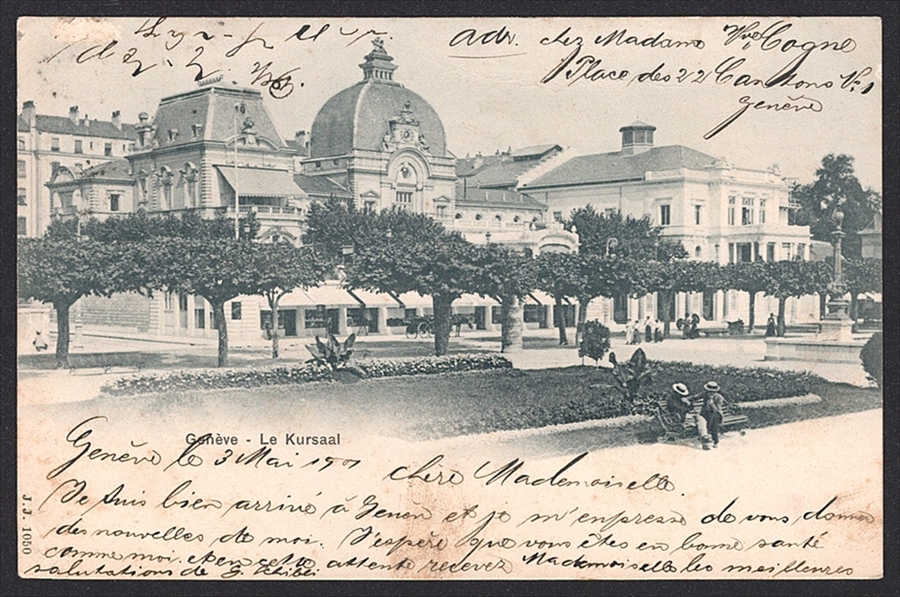 adr. chez Madame Vve Cogne
Place des 22 Cantons No 1
Genève
Genève - Le Kursaal
J.J. 1050
Genève le 3 Mai 1901 chère Mademoiselle.
Je suis bien arrivé à Genev et je m'enpresse de vous donner
des nouvelles de moi. J'espère que vous êtes en bonne santé
comme moi. et en cette attente recevez Mademoiselle les meilleures
salutations de G.